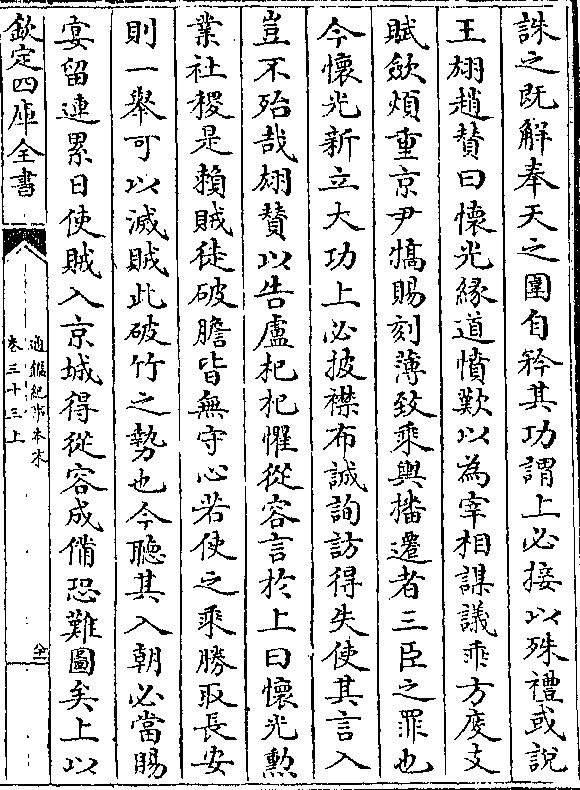 誅之既解奉天之圍自矜其功謂上必接以殊禮或說
王翃趙賛曰懷光緣道憤歎以為宰相謀議乖方度支
賦歛煩重京尹犒賜刻薄致乘輿播遷者三臣之罪也
今懷光新立大功上必披襟布誠詢訪得失使其言入
豈不殆哉翃賛以告盧杞杞懼從容言於上曰懷光勲
業社稷是賴賊徒破膽皆無守心若使之乘勝取長安
則一舉可以滅賊此破竹之勢也今聽其入朝必當賜
宴留連累日使賊入京城得從容成備恐難圖矣上以
欽定四庫全書
通鑑紀事本末
卷三十三上